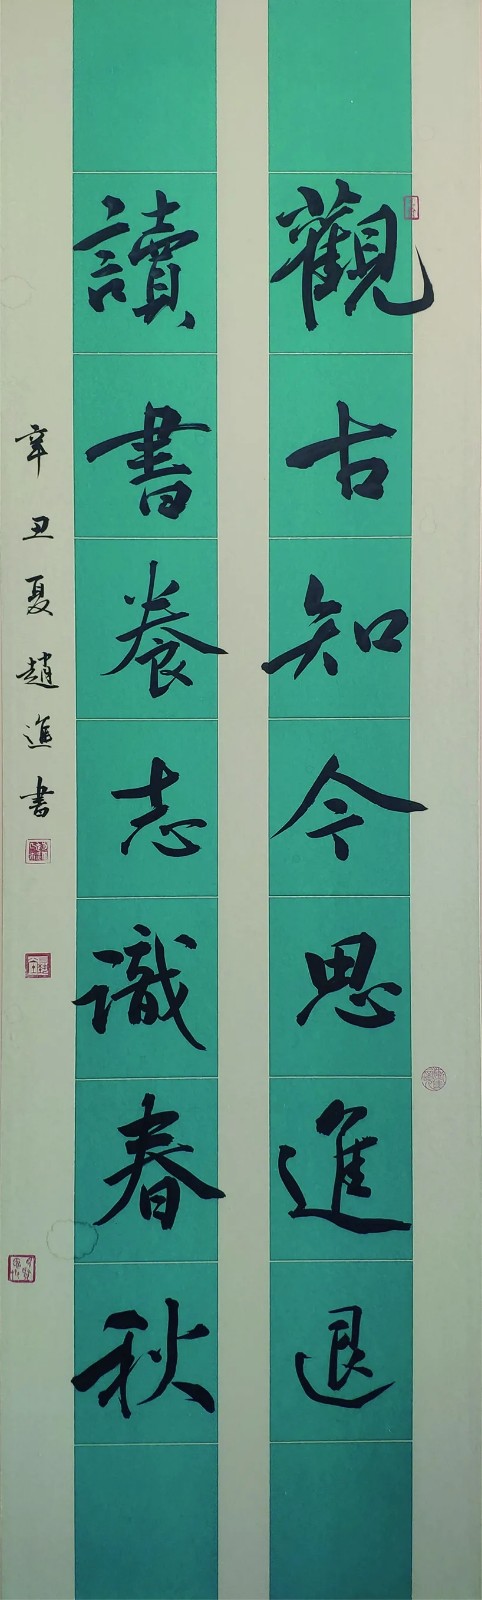 觀古知今思進退
讀書養志識春秋
辛丑夏趙進書